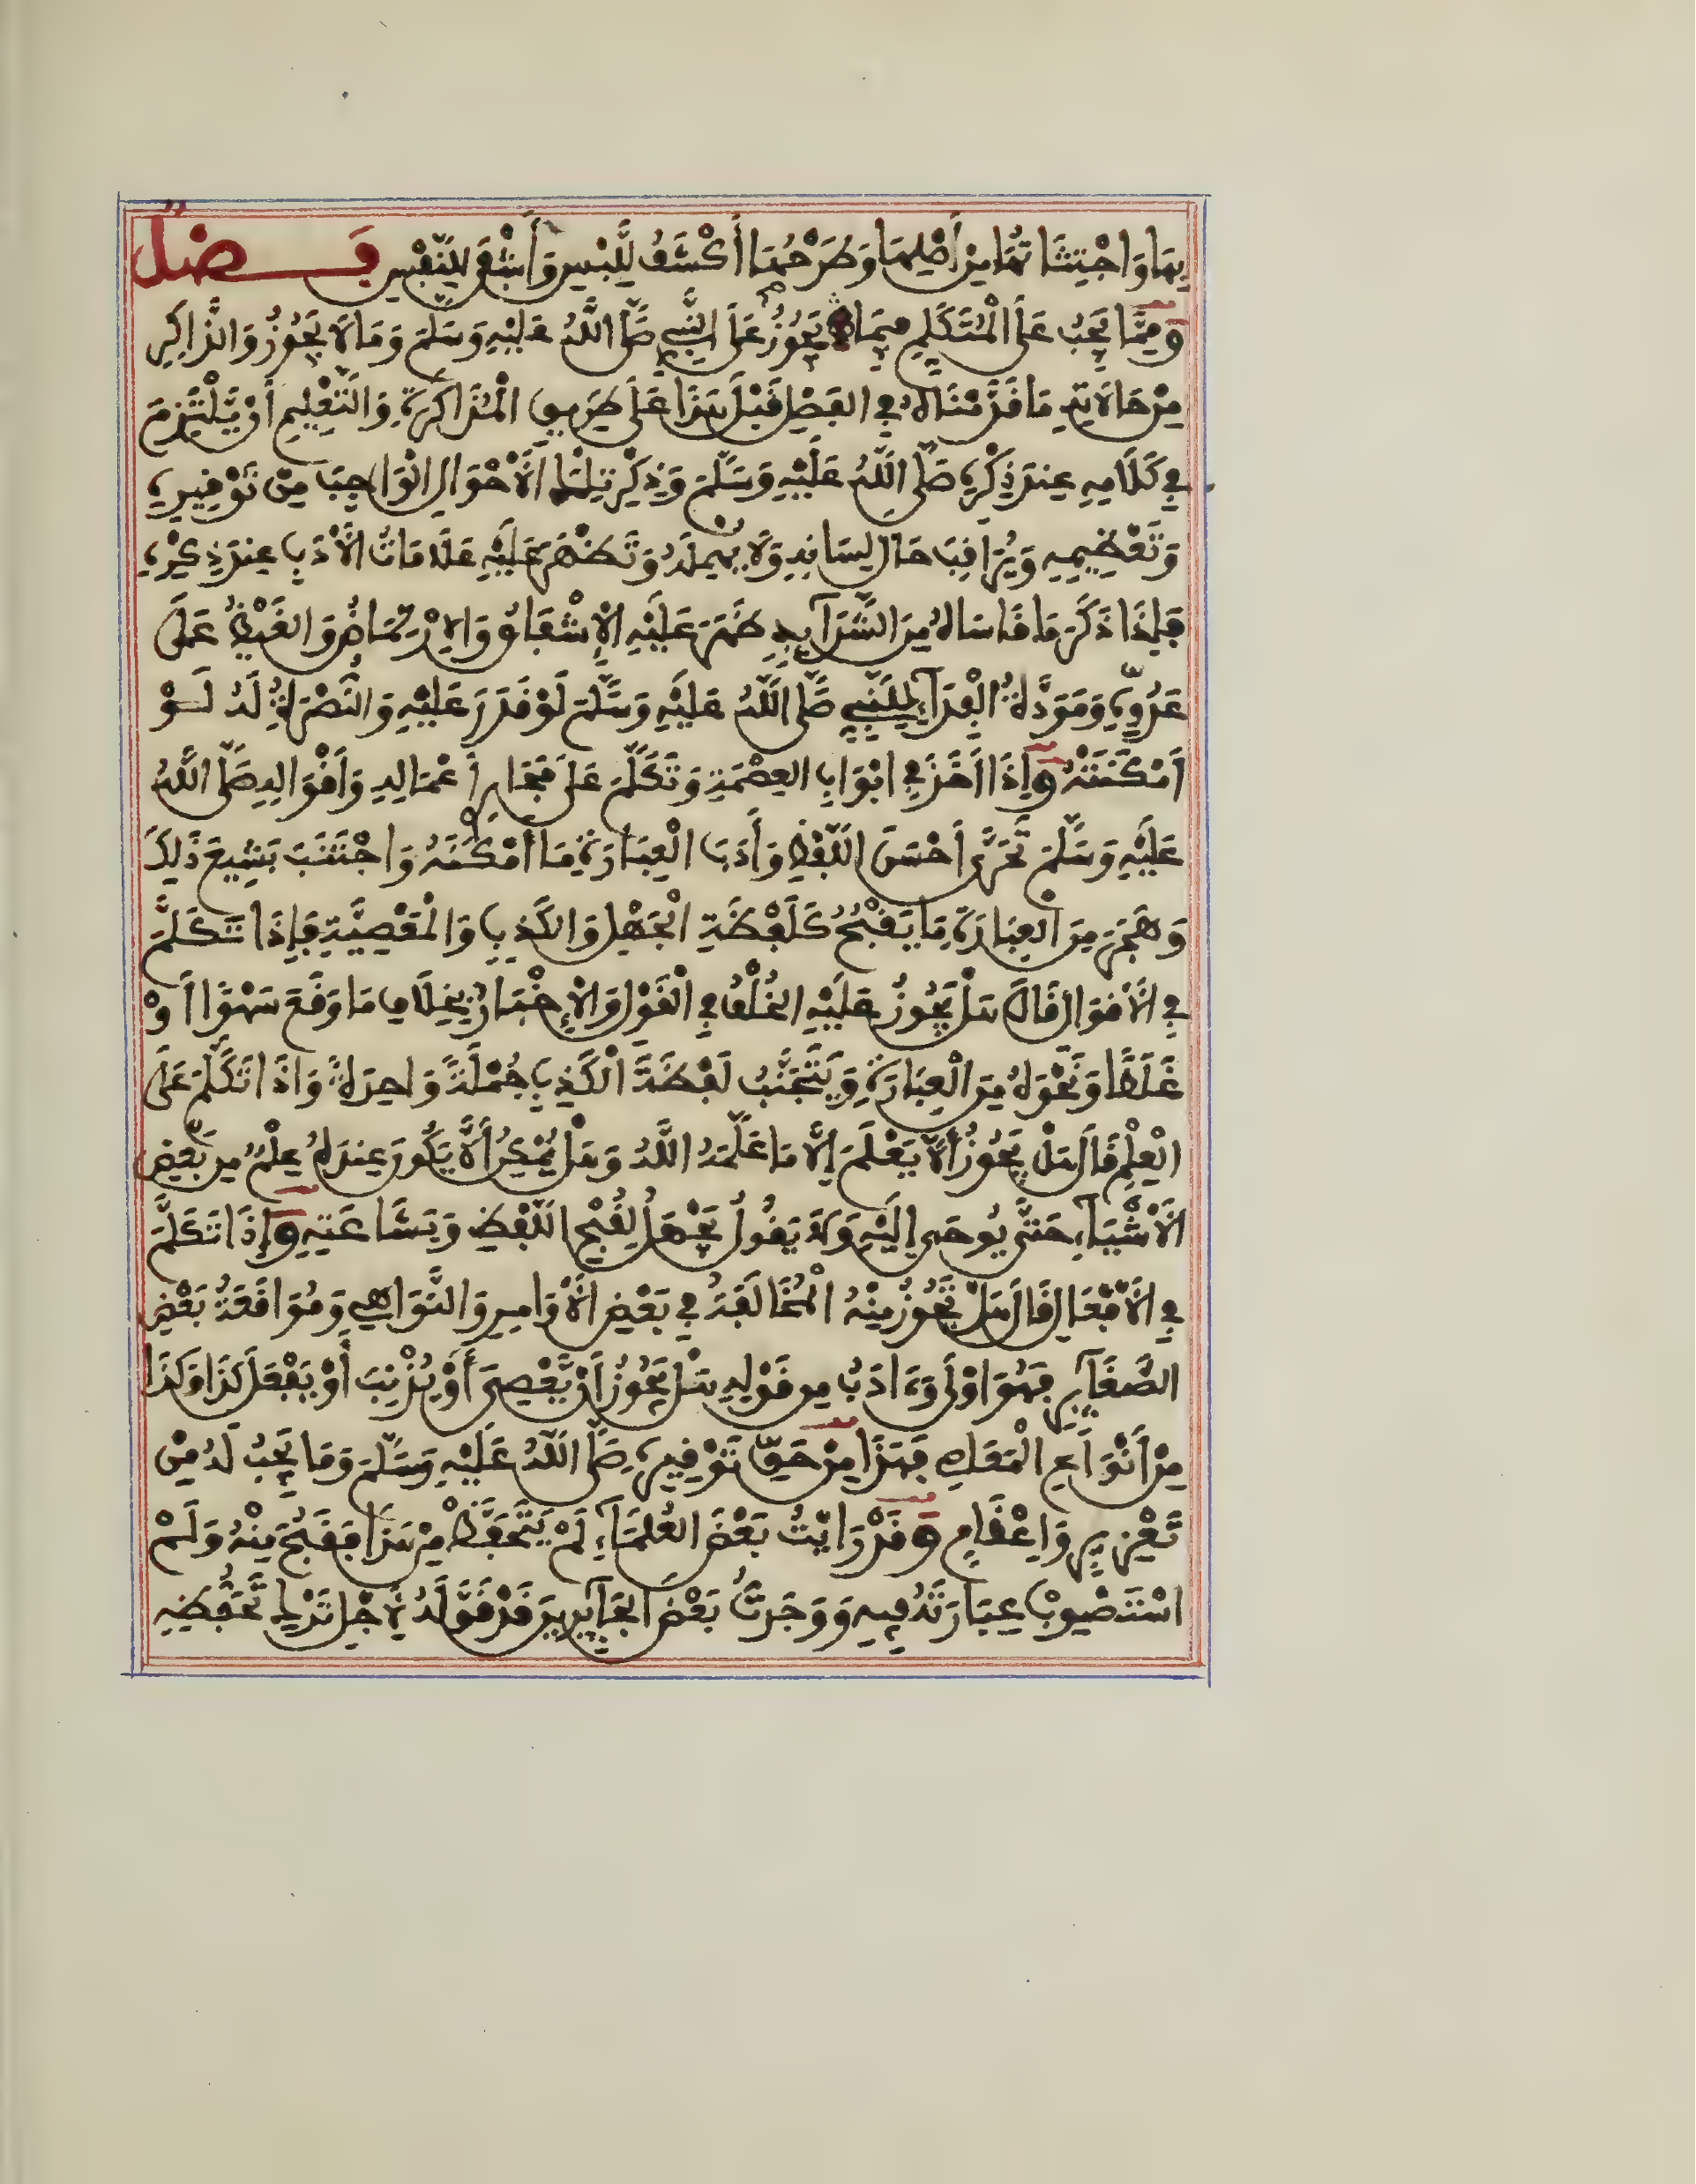 بِهَا وَاجْتِثَاثُهَا مِنْ أَصْلِهَا وَطَرْحُهَا أَكْشَفُ لِلَّبْسِ وَأَشْفَى لِلنَّفْسِ فَصْلٌ
وَمِمَّا يَجِبُ عَلَى الْمُتَكَلِّمِ فِيمَا يَجُوزُ عَلَى النَّبِيِّ صَلَّى اللَّهُ عَلَيْهِ وَسَلَّمَ وَمَا لَا يَجُوزُ وَالذَّاكِرِ
مِنْ حَالَاتِهِ مَا قَدَّمْنَاهُ فِي الْفَصْلِ قَبْلَ هَذَا عَلَى طَرِيقِ الْمُذَاكَرَةِ وَالتَّعْلِيمِ أَنْ يَّلْتَزِمَ
فِي كَلَامِهِ عِنْدَ ذِكْرِهِ صَلَّى اللَّهُ عَلَيْهِ وَسَلَّمَ وَذِكْرِ تِلْكَ الْأَحْوَالِ الْوَاجِبَ مِنْ تَوْقِيرِهِ
وَتَعْظِيمِهِ وَيُرَاقِبَ حَالَ لِسَانِهِ وَلَا يُهْمِلَهُ وَتَظْهَرَ عَلَيْهِ عَلَامَاتُ الْأَدَبِ عِنْدَ ذِكْرِهِ
فَإِذَا ذَكَرَ مَا قَاسَاهُ مِنَ الشَّدَائِدِ ظَهَرَ عَلَيْهِ الْإِشْفَاقُ وَالِارْتِمَاضُ وَالْغَيْظُ عَلَى
عَدُوِّهِ وَمَوَدَّةُ الْفِدَاءِ لِلنَّبِيِّ صَلَّى اللَّهُ عَلَيْهِ وَسَلَّمَ لَوْ قَدَرَ عَلَيْهِ وَالنُّصْرَةُ لَهُ لَوْ
أَمْكَنَتْهُ وَإِذَا أَخَذَ فِي ابْوَابِ الْعِصْمَةِ وَتَكَلَّمَ عَلَى مَجَارِي أَعْمَالِهِ وَأَقْوَالِهِ صَلَّى اللَّهُ
عَلَيْهِ وَسَلَّمَ تَحَرَّى أَحْسَنَ اللَّفْظِ وَأَدَبَ الْعِبَارَةِ مَا أَمْكَنَهُ وَاجْتَنَبَ بَشِيعَ ذَلِكَ
وَهَجَرَ مِنَ الْعِبَارَةِ مَا يَقْبُحُ كَلَفْظَةِ الْجَهْلِ وَالْكَذِبِ وَالْمَعْصِيَةِ فَإِذَا تَكَلَّمَ
فِي الْأَقْوَالِ قَالَ هَلْ يَجُوزُ عَلَيْهِ الْخُلْفُ فِي الْقَوْلِ وَالْإِخْبَارُ بِخِلَافِ مَا وَقَعَ سَهْوًا أَوْ
غَلَطًا وَنَحْوَهُ مِنَ الْعِبَارَةِ وَيَتَجَنَّبُ لَفْظَةَ الْكَذِبِ جُمْلَةً وَاحِدَةً وَإِذَا تَكَلَّمَ عَلَى
الْعِلْمِ قَالَ هَلْ يَجُوزُ أَلَّا يَعْلَمَ إِلَّا مَا عَلَّمَهُ اللَّهُ وَهَلْ يُمْكِنُ أَلَّا يَكُونَ عِنْدَهُ عِلْمٌ مِنْ بَعْضِ
الْأَشْيَاءِ حَتَّى يُوحَى إِلَيْهِ وَلَا يَقُولُ يَجْهَلُ لِقُبْحِ اللَّفْظِ وَبَشَاعَتِهِ وَإِذَا تَكَلَّمَ
فِي الْأَفْعَالِ قَالَ هَلْ تَجُوزُ مِنْهُ الْمُخَالَفَةُ فِي بَعْضِ الْأَوَامِرِ وَالنَّوَاهِي وَمُوَاقَعَةُ بَعْضِ
الصَّغَائِرِ فَهُوَ أَوْلَى وَءَادَبُ مِنْ قَوْلِهِ هَلْ يَجُوزُ أَنْ يَّعْصِيَ أَوْ يُذْنِبَ أَوْ يَفْعَلَ كَذَا وَكَذَا
مِنْ أَنْوَاعِ الْمَعَاصِي فَهَذَا مِنْ حَقِّ تَوْقِيرِهِ صَلَّى اللَّهُ عَلَيْهِ وَسَلَّمَ وَمَا يَجِبُ لَهُ مِنْ
تَعْزِيرٍ وَإِعْظَامٍ وَقَدْ رَأَيْتُ بَعْضَ الْعُلَمَاءِ لَمْ يَتَحَفَّظْ مِنْ هَذَا فَقَبُحَ مِنْهُ وَلَمْ
اسْتَصْوِبْ عِبَارَتَهُ فِيهِ وَوَجَدْتُ بَعْضَ الْجَائِرِينَ قَدْ قَوَّلَهُ لِأَجْلِ تَرْكِ تَحَفُّظِهِ